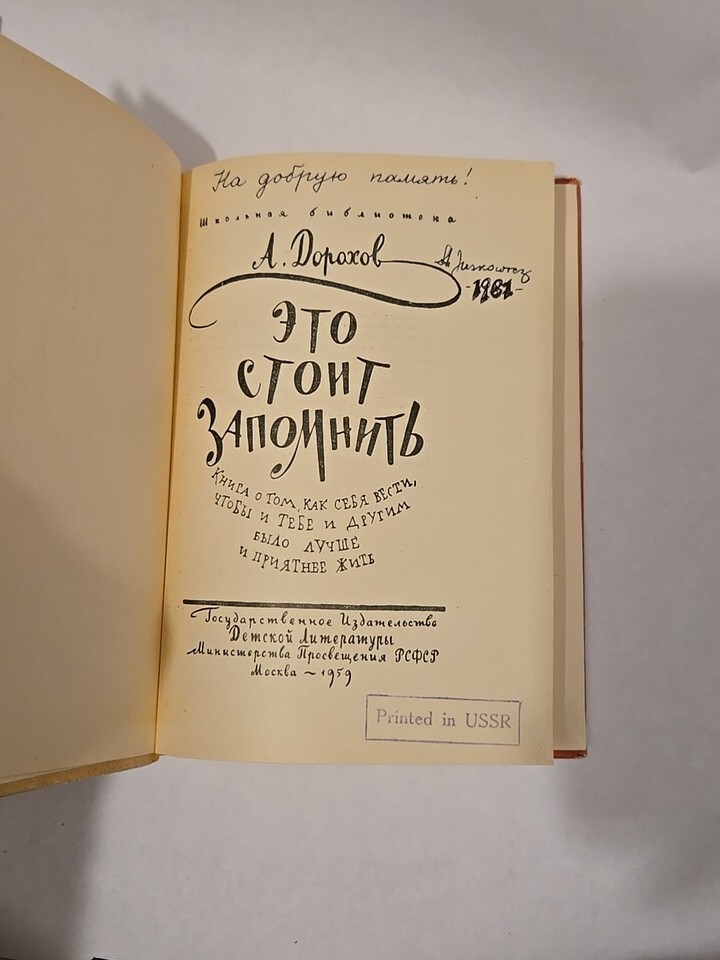 На добрую память!
Школьная библиотека
А. Дорохов
1981
ЭТО
СТОИТ
ЗАПОМНИТЬ
КНИГА О ТОМ, КАК СЕБЯ ВЕСТИ,
ЧТОБЫ И ТЕБЕ И ДРУГИМ
БЫЛО ЛУЧШЕ
И ПРИЯТНЕЕ ЖИТЬ
Государственное Издательство
Детской Литературы
Министерства Просвещения РСФСР
Москва ~ 1959
Printed in USSR